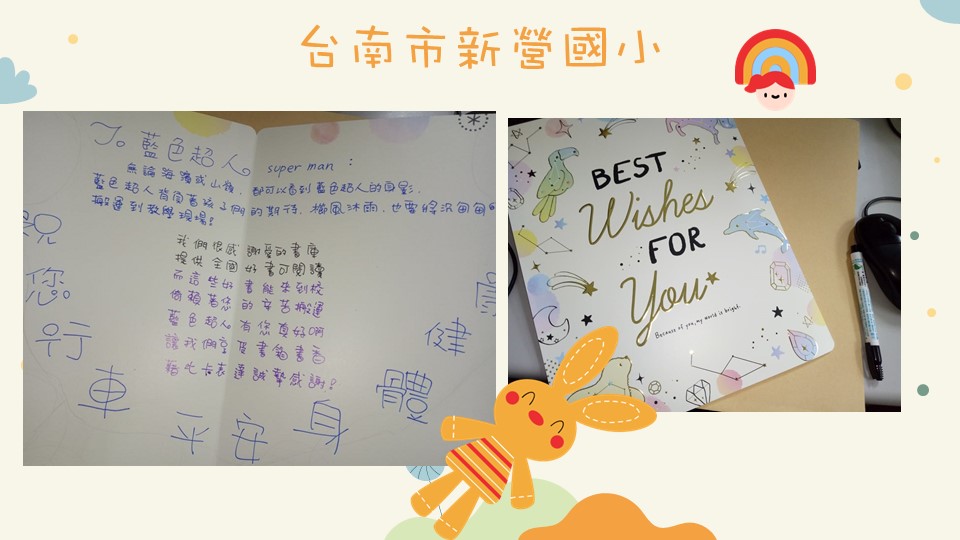 台南市新營國小
To 藍色超人。 super man :
無論海濱或山嶺,都可以看到藍色超人的身影,
藍色超人背負著孩子們的期待,櫛風沐雨,也要將沉甸甸的
搬運到教學現場!
我們很感謝愛的書庫
提供全國好書可閱讀
而這些好書能來到校
倚賴著您的辛苦搬運
藍色超人有您真好啊
讓我們享受書箱書香
藉此卡表達誠摯感謝!
祝
您
行
車
平安
身
體
健
BEST
Wishes
FOR
You
Because of you, my world is bright.